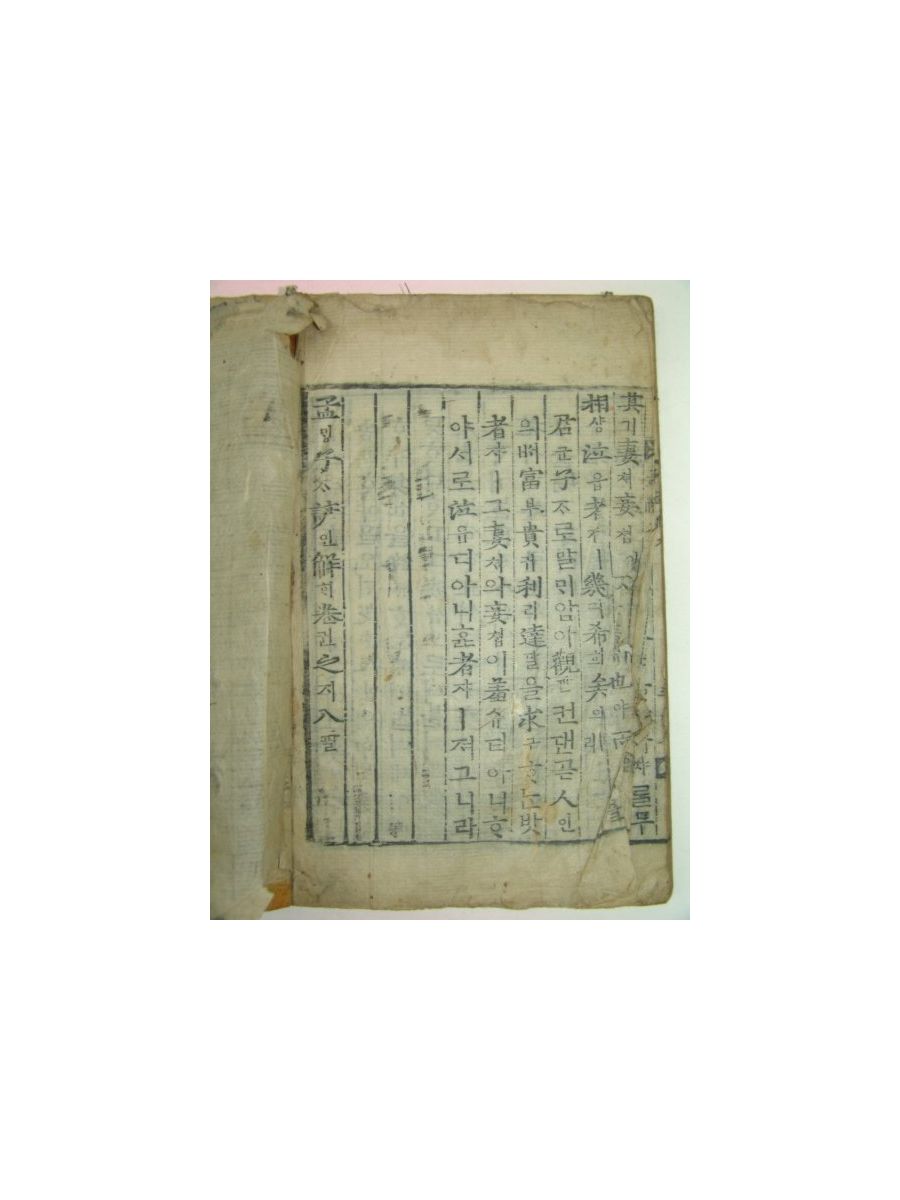 其기妻쳐妾쳡이不也야而
相샹泣읍者쟈ㅣ幾긔希희矣의
君군子ᄌᆞ로말ᄆᆡ암아觀관컨댄곧人인
의ᄡᅥ富부貴귀利리達달을求구ᄒᆞᄂᆞᆫ밧
者쟈ㅣ그妻쳐와妾쳡이羞슈티아니ᄒᆞ
야서로泣읍디아니ᄒᆞᆫ者쟈ㅣ져그니라
孟ᄆᆡᆼ子ᄌᆞ諺언解ᄒᆡ卷권之지八팔